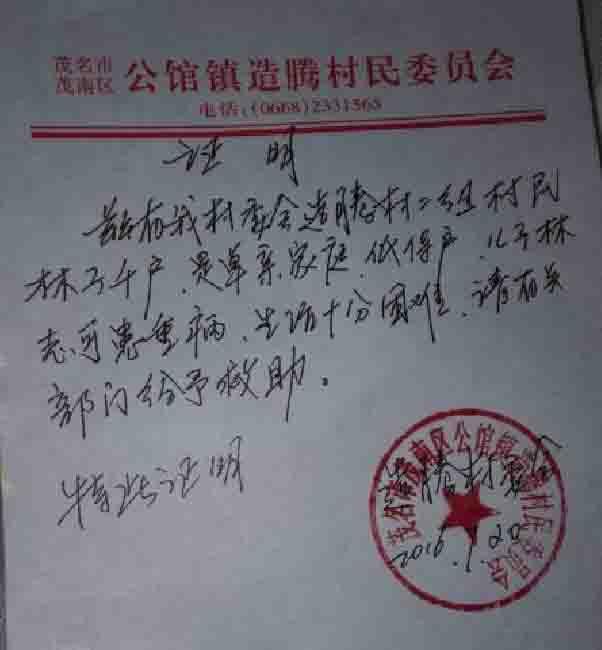 茂名市
茂南区 公馆镇造腾村民委员会
电话:(0668)2331563
证明
兹有我村委会造腾村二组村民
林子千户,是单亲家庭,低保户,儿子林
志可患重病,生活十分困难,请有关
部门给予救助。
特此证明
造腾村委会
2016.1.20
茂名市茂南区公馆镇造腾村民委员会